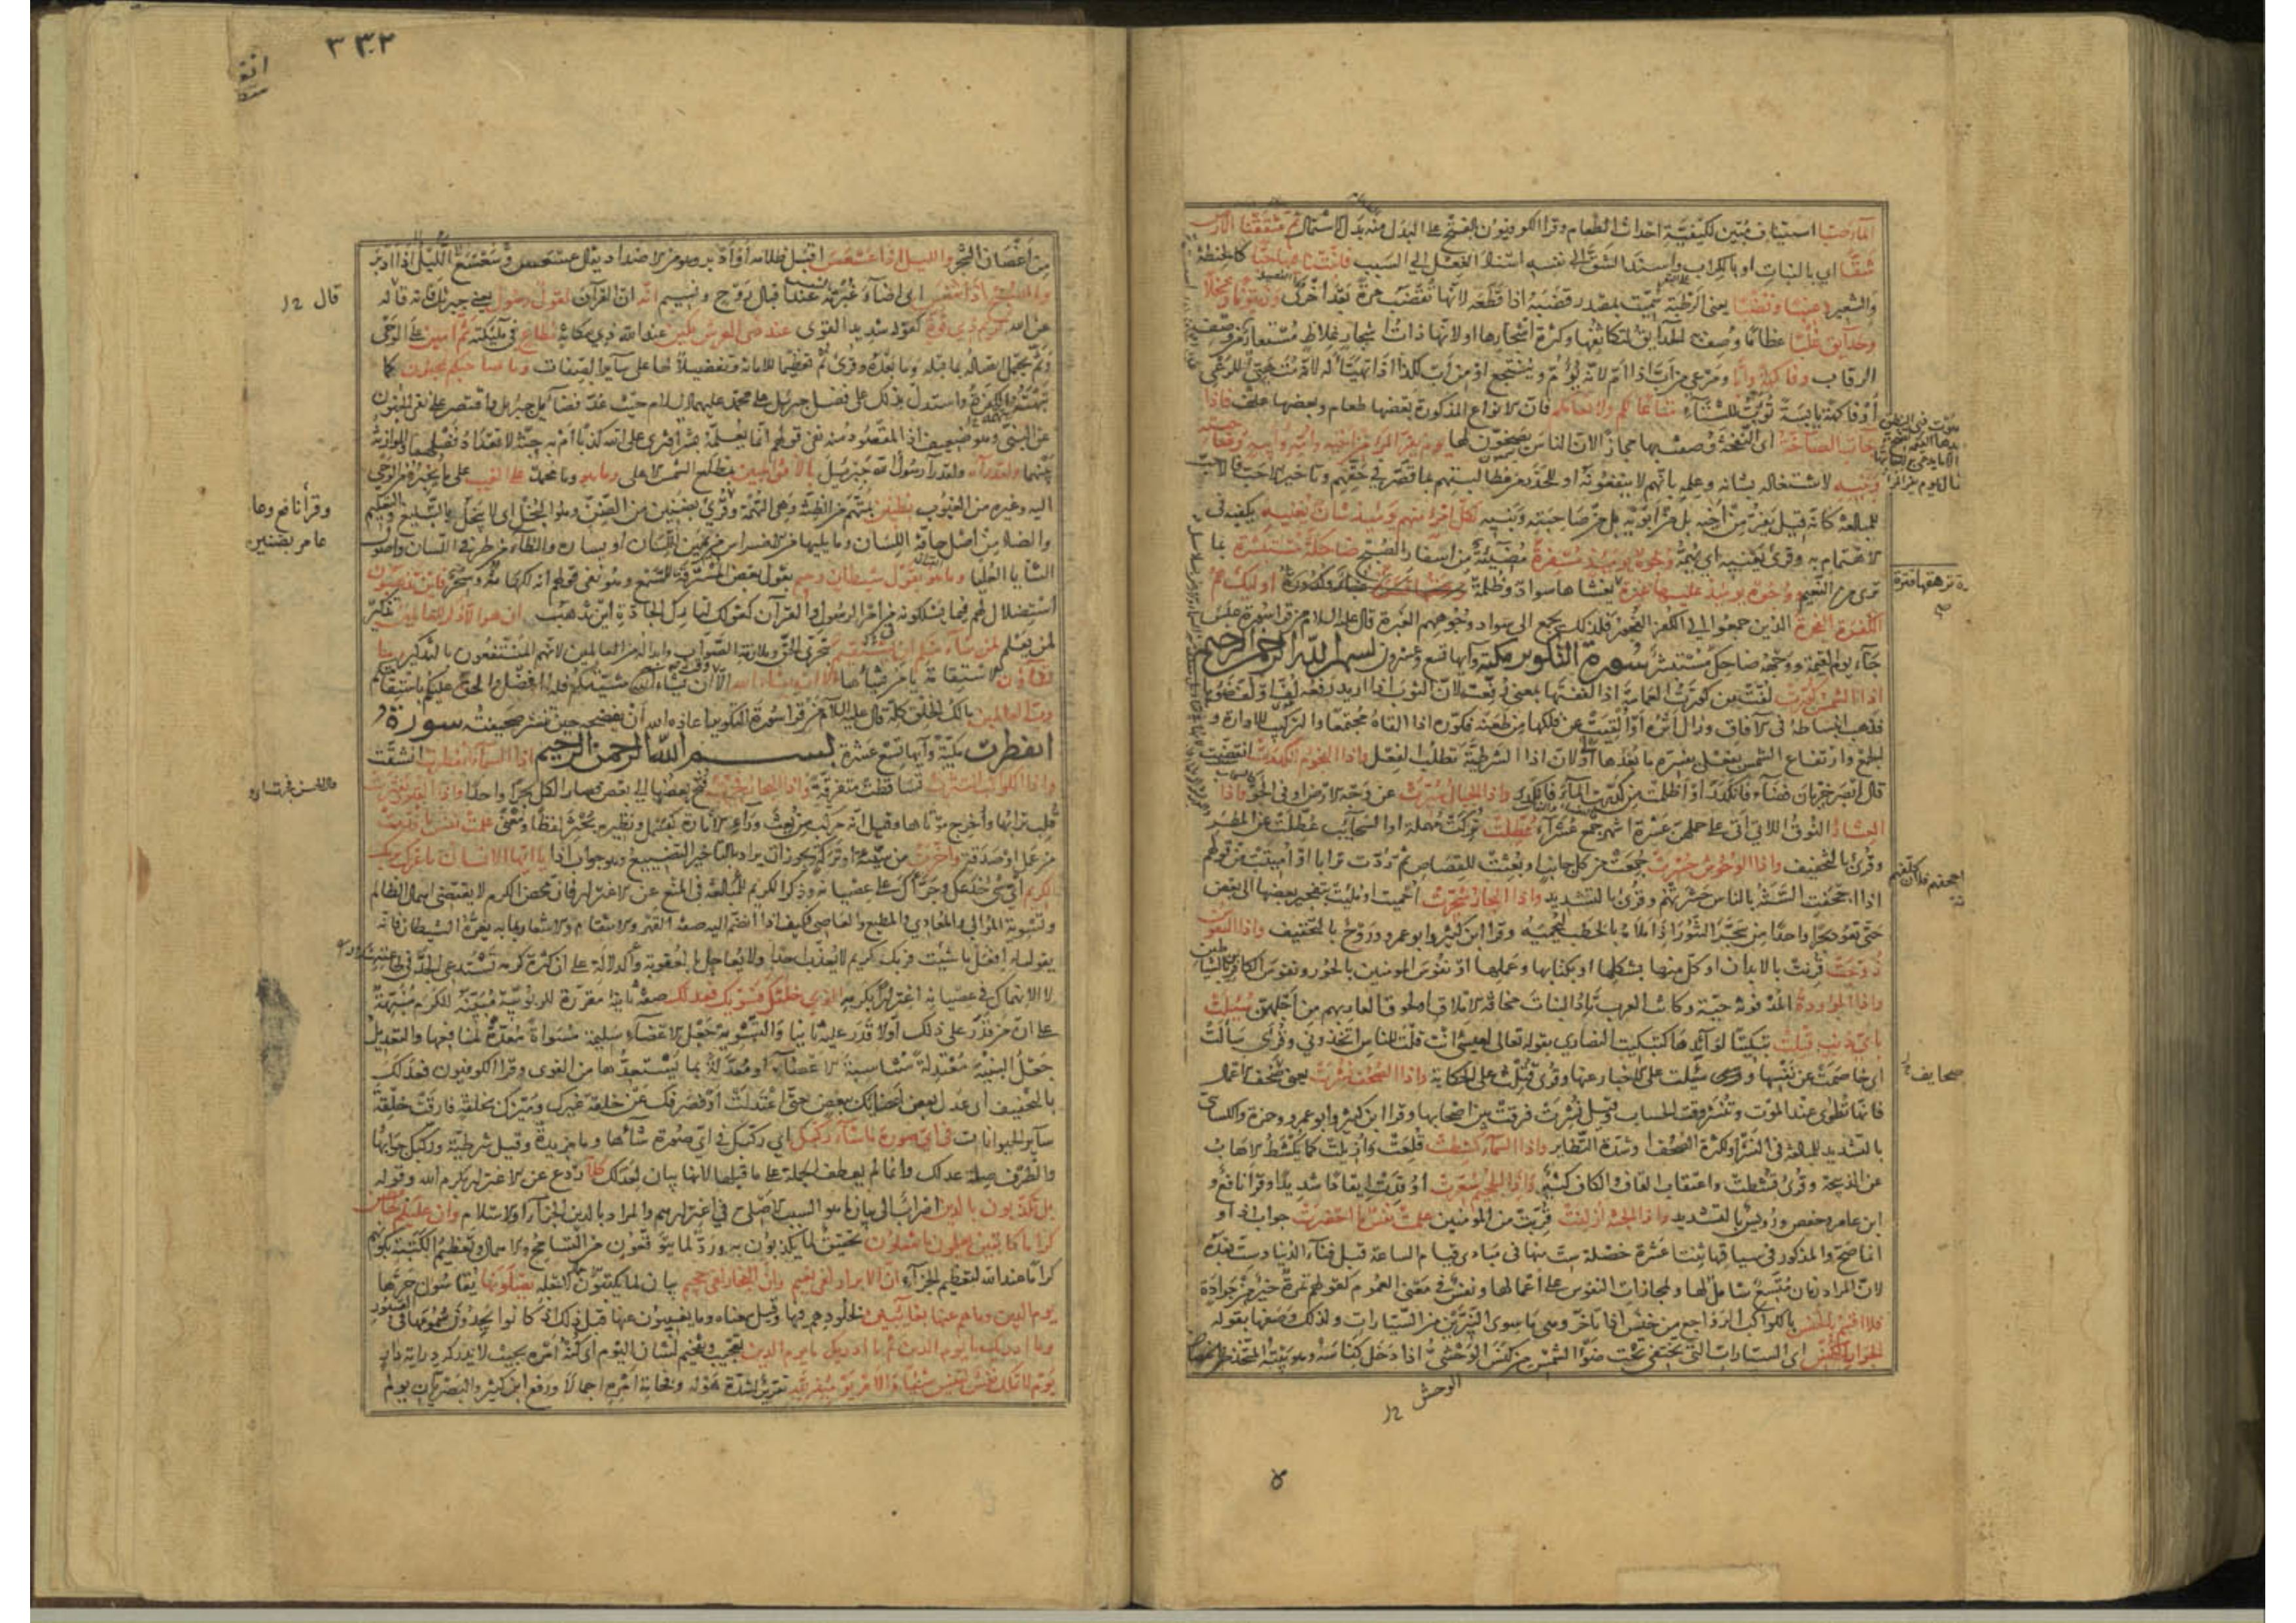 الماء صبا استيناف مبين لكيفية احداث الطعام وقرا الكوفيون بالفتح على البدل منه بدل الاشتمال ثم شققنا الارض
شقا اي بالنبات او بالكراب واسند الشق الى نفسه اسناد الفعل الى السبب فانبتنا فيها حبا كالحنطة
والشعير وعنبا وقضبا يعني الرطبة سميت بمصدر قضبه اذا قطعه لانها تقضب مرة بعد اخرى وزيتونا ونخلا
وحدايق غلبا عظاما وصف به الحدايق لتكاثفها وكثرة اشجارها او لانها ذات اشجار غلاظ مستعار من وصف
الرقاب وفاكهة وابا ومرعى من اب اذا ام لانه يؤم وينتجع او من اب لكذا اذا تهيأ له لانه متهيئ للرعي
او فاكهة يابسة تؤب للشتاء متاعا لكم ولانعامكم فان الانواع المذكورة بعضها طعام وبعضها علف فاذا
جاءت الصاخة اي النفخة وصفت بها مجازا لان الناس يصخون لها يوم يفر المرء من اخيه وامه وابيه وصاحبته
وبنيه لاشتغاله بشانه وعلمه بانهم لا ينفعونه او للحذر من مطالبتهم بما قصر في حقهم وتاخير الاحب فالاحب
للمبالغة كانه قيل يفر من اخيه بل من ابويه بل من صاحبته وبنيه لكل امرئ منهم يومئذ شان يغنيه يكفيه في
الاهتمام به وقرئ يعنيه اي يهمه وجوه يومئذ مسفرة مضيئة من اسفار الصبح ضاحكة مستبشرة بما
ترى من النعيم ووجوه يومئذ عليها غبرة يغشاها سواد وظلمة اوليك هم
الكفرة الفجرة الذين جمعوا الى الكفر الفجور فلذلك يجمع الى سواد وجوههم الغبرة قال عليه السلام من قرا سورة عبس
جاء يوم القيمة ووجهه ضاحك مستبشر سورة التكوير مكية وآيها تسع وعشرون بسم الله الرحمن الرحيم
اذا الشمس كورت لفت من كورت العمامة اذا لففتها بمعنى رفعت لان الثوب اذا اريد رفعه لف او لف ضوءها
فذهب انبساطه في الآفاق وزال اثره او القيت عن فلكها من طعنه فكوره اذا القاه مجتمعا والتركيب للادارة و
الجمع وارتفاع الشمس بفعل يفسره ما بعدها اولى لان اذا الشرطية تطلب الفعل واذا النجوم انكدرت انقضت
قال ابصر خربان فضاء فانكدر او اظلمت من كدرت الماء فانكدر واذا الجبال سيرت عن وجه الارض او في الجو واذا
العشار النوق اللاتي اتى على حملهن عشرة اشهر جمع عشراء عطلت تركت مهملة او السحايب عطلت عن المطر
وقرئ بالتخفيف واذا الوحوش حشرت جمعت من كل جانب او بعثت للقصاص ثم ردت ترابا او اميتت من قولهم
اذا اجحفت السنة بالناس حشرتهم وقرئ بالتشديد واذا البحار سجرت احميت او ملئت بتفجير بعضها الى بعض
حتى تعود بحرا واحدا من سجر التنور اذا ملاه بالحطب ليحميه وقرا ابن كثير وابو عمرو وروح بالتخفيف واذا النفوس
زوجت قرنت بالابدان او كل منها بشكلها او بكتابها وعملها او نفوس المومنين بالحور ونفوس الكافرين بالشياطين
واذا الموؤدة المدفونة حية وكانت العرب تئد البنات مخافة الاملاق او لحوق العار بهم من اجلهن سئلت
باي ذنب قتلت تبكيتا لوائدها كتبكيت النصارى بقوله تعالى لعيسى انت قلت للناس اتخذوني وقرئ سألت
اي خاصمت عن نفسها وسئلت على الاخبار عنها وقرئ قتلت على الحكاية واذا الصحف نشرت يعني صحف الاعمال
فانها تطوى عند الموت وتنشر وقت الحساب وقيل نشرت فرقت بين اصحابها وقرا ابن كثير وابو عمرو وحمزة والكسائي
بالتشديد للمبالغة في النشر او لكثرة الصحف او شدة التطاير واذا السماء كشطت قلعت وازيلت كما يكشط الاهاب
عن الذبيحة وقرئ قشطت واعتقاب القاف والكاف كثير واذا الجحيم سعرت اوقدت ايقادا شديدا وقرا نافع و
ابن عامر وحفص ورويس بالتشديد واذا الجنة ازلفت قربت من المومنين علمت نفس ما احضرت جواب اذا و
انما صح والمذكور في سياقها ثنتا عشرة خصلة ست منها في مبادي قيام الساعة قبل فناء الدنيا وست بعده
لان المراد زمان متسع شامل لها ولمجازات النفوس على اعمالها ونفس في معنى العموم كقولهم تمرة خير من جرادة
فلا اقسم بالخنس بالكواكب الرواجع من خنس اذا تاخر وهي ما سوى النيرين من السيارات ولذلك وصفها بقوله
الجوار الكنس اي السيارات التي تختفي تحت ضوء الشمس من كنس الوحشي اذا دخل كناسه وهو بيته المتخذ
الوحش
صحايف
٣٣٢
من اغصان الشجر والليل اذا عسعس اقبل ظلامه او ادبر وهو من الاضداد يقال عسعس وسعسع الليل اذا ادبر
والصبح اذا تنفس اي اضاء غبرته عند اقبال روح ونسيم انه ان القرآن لقول رسول يعني جبرئيل فانه قاله
عن الله كريم ذي قوة كقوله شديد القوى عند ذي العرش مكين عند الله ذي مكانة مطاع في ملئكته ثم امين على الوحي
وثم يحتمل اتصاله بما قبله وما بعده وقرئ ثم تعظيما للامانة وتفضيلا لها على ساير الصفات وما صاحبكم بمجنون كما
تبهته الكفرة واستدل بذلك على فضل جبرئيل على محمد عليهما السلام حيث عد فضايل جبريل واقتصر على نفي الجنون
عن النبي وهو ضعيف اذ المقصود منه نفي قولهم انما يعلمه بشر افترى على الله كذبا ام به جنة لا تعداد فضلهما والموازنة
بينهما ولقد رآه ولقد رآ رسول الله جبرئيل بالافق المبين بمطلع الشمس الاعلى وما هو وما محمد على الغيب على ما يخبره من الوحي
اليه وغيره من الغيوب بظنين بمتهم من الظنة وهي التهمة وقرئ بضنين من الضن وهو البخل اي لا يبخل بالتبليغ والتعليم
والضاد من اصل حافة اللسان وما يليها من الاضراس من يمين اللسان او يساره والظاء من طرف اللسان واصول
الثنايا العليا وما هو بقول شيطان رجيم بقول بعض المسترقة للسمع وهو نفي قولهم انه لكهانة وسحر فاين تذهبون
استضلال لهم فيما يسلكونه من امر الرسول والقرآن كقولك لتارك الجادة اين تذهب ان هو الا ذكر للعالمين تذكير
لمن يعلم لمن شاء منكم ان يستقيم بتحري الحق وملازمة الصواب وابداله من العالمين لانهم المنتفعون بالتذكير وما
تشاؤن الاستقامة يا من يشاؤها الا ان يشاء الله الا ان يشاء الله مشيتكم فله الفضل والحق عليكم باستقامتكم
رب العالمين مالك الخلق كله قال عليه السلام من قرا سورة التكوير اعاذه الله ان يفضحه حين تنشر صحيفته سورة
انفطرت مكية وآيها تسع عشرة بسم الله الرحمن الرحيم اذا السماء انفطرت انشقت
واذا الكواكب انتثرت تساقطت متفرقة واذا البحار فجرت فتح بعضها الى بعض فصار الكل بحرا واحدا واذا القبور بعثرت
قلب ترابها واخرج موتاها وقيل انه مركب من بعث وراء الاثارة كبسمل ونظيره بحثر لفظا ومعنى علمت نفس ما قدمت
من عمل او صدقة واخرت من سنة او تركة ويجوز ان يراد بالتاخير التضييع وهو جواب اذا يا ايها الانسان ما غرك بربك
الكريم اي شيء خدعك وجراك على عصيانه وذكر الكريم للمبالغة في المنع عن الاغترار فان محض الكرم لا يقتضي اهمال الظالم
وتسوية الموالي والمعادي والمطيع والعاصي فكيف اذا انضم اليه صفة القهر والانتقام والاشعار بما به يغره الشيطان فانه
يقول له افعل ما شئت فربك كريم لا يعذب احدا ولا يعاجل بالعقوبة والدلالة على ان كثرة كرمه تستدعي الجد في طاعته
لا الانهماك في عصيانه اغترارا بكرمه الذي خلقك فسويك فعدلك صفة ثانية مقررة للربوبية مبينة للكرم منبهة
على ان من قدر على ذلك اولا قدر عليه ثانيا والتسوية جعل الاعضاء سليمة مسواة معدة لمنافعها والتعديل
جعل البنية معتدلة متناسبة الاعضاء او معدلة بما يستعدها من القوى وقرا الكوفيون فعدلك
بالتخفيف اي عدل بعض اعضائك ببعض حتى اعتدلت او فصرفك عن خلقة غيرك وميزك بخلقة فارقت خلقة
ساير الحيوانات في اي صورة ما شاء ركبك اي ركبك في اي صورة شاءها وما مزيدة وقيل شرطية وركبك جوابها
والظرف صلة عدلك وانما لم يعطف الجملة على ما قبلها لانها بيان لعدلك كلا ردع عن الاغترار بكرم الله وقوله
بل تكذبون بالدين اضراب الى بيان ما هو السبب الاصلي في اغترارهم والمراد بالدين الجزاء او الاسلام وان عليكم لحافظين
كراما كاتبين يعلمون ما تفعلون تحقيق لما يكذبون به ورد لما يتوقعون من التسامح والاهمال وتعظيم الكتبة بكونهم
كراما عند الله لتعظيم الجزاء ان الابرار لفي نعيم وان الفجار لفي جحيم بيان لما يكتبون لاجله يصلونها يقاسون حرها
يوم الدين وما هم عنها بغايبين لخلودهم فيها وقيل معناه وما يغيبون عنها قبل ذلك اذ كانوا يجدون سمومها في القبور
وما ادريك ما يوم الدين ثم ما ادريك ما يوم الدين تعجيب وتفخيم لشان اليوم اي كنه امره بحيث لا يدركه دراية دار
يوم لا تملك نفس لنفس شيئا والامر يومئذ لله تقرير لشدة هوله وفخامة امره اجمالا ورفع ابن كثير والبصريان يوم
قال
وقرأ نافع وعا
عامر بضنين